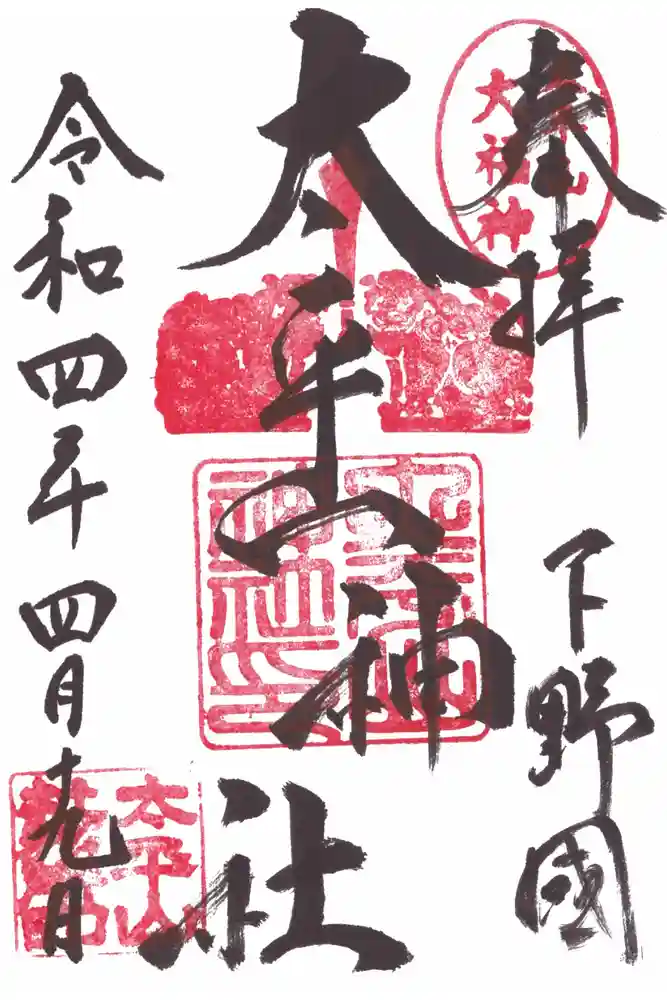 奉拝
大福神
下野國
太平山神社
令和四年四月十九日
太平山